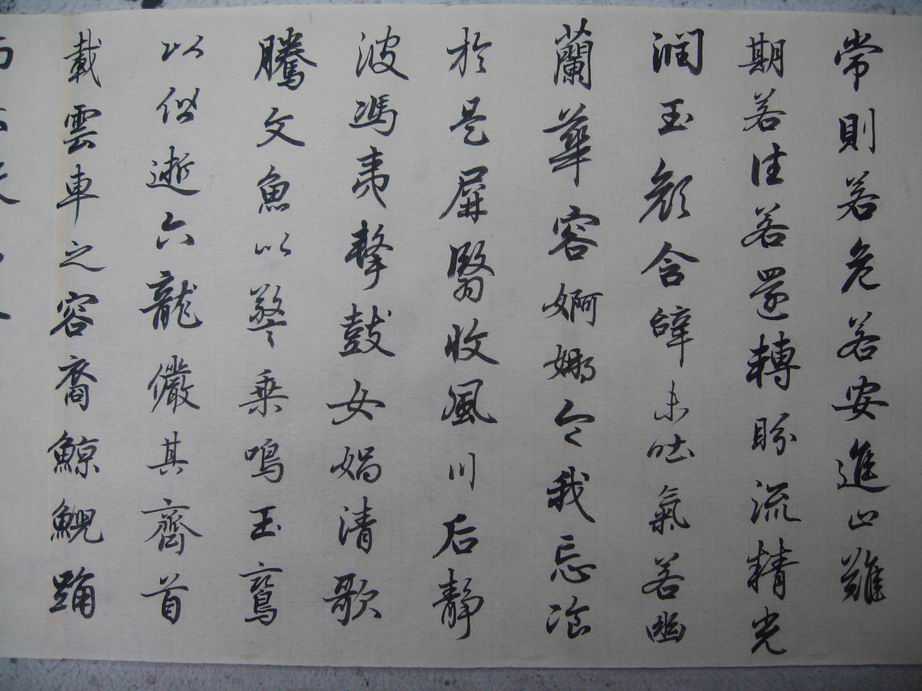 常則若危若安進止難
期若往若還轉盼流精光
潤玉顏含辭未吐氣若幽
蘭華容婀娜令我忘飡
於是屏翳收風川后静
波馮夷擊鼓女媧清歌
騰文魚以警乗鳴玉鸞
以偕逝六龍儼其齊首
載雲車之容裔鯨鯢踊